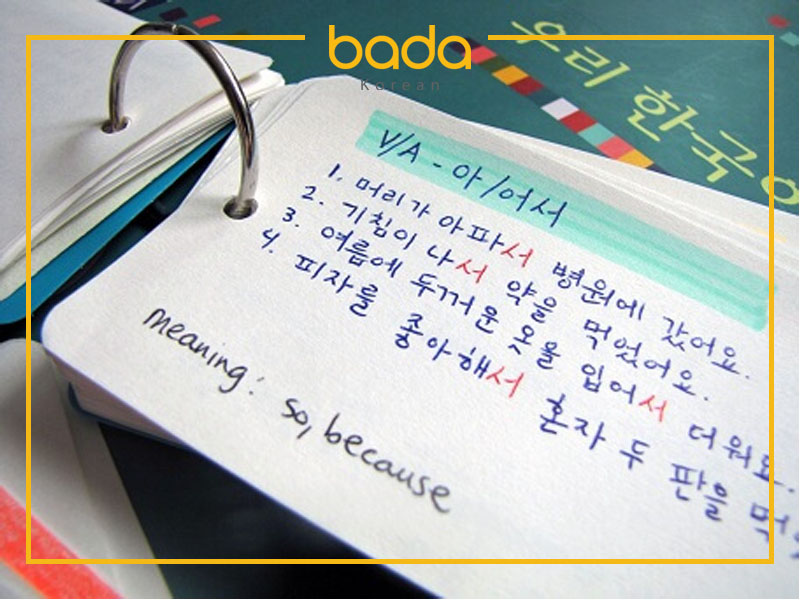 bada
Korean
우리 한국어
V/A - 아/어서
1. 머리가 아파서 병원에 갔어요.
2. 기침이 나서 약을 먹었어요.
3. 여름에 두꺼운 옷을 입어서 더워요.
4. 피자를 좋아해서 혼자 두 판을
meaning: so, because